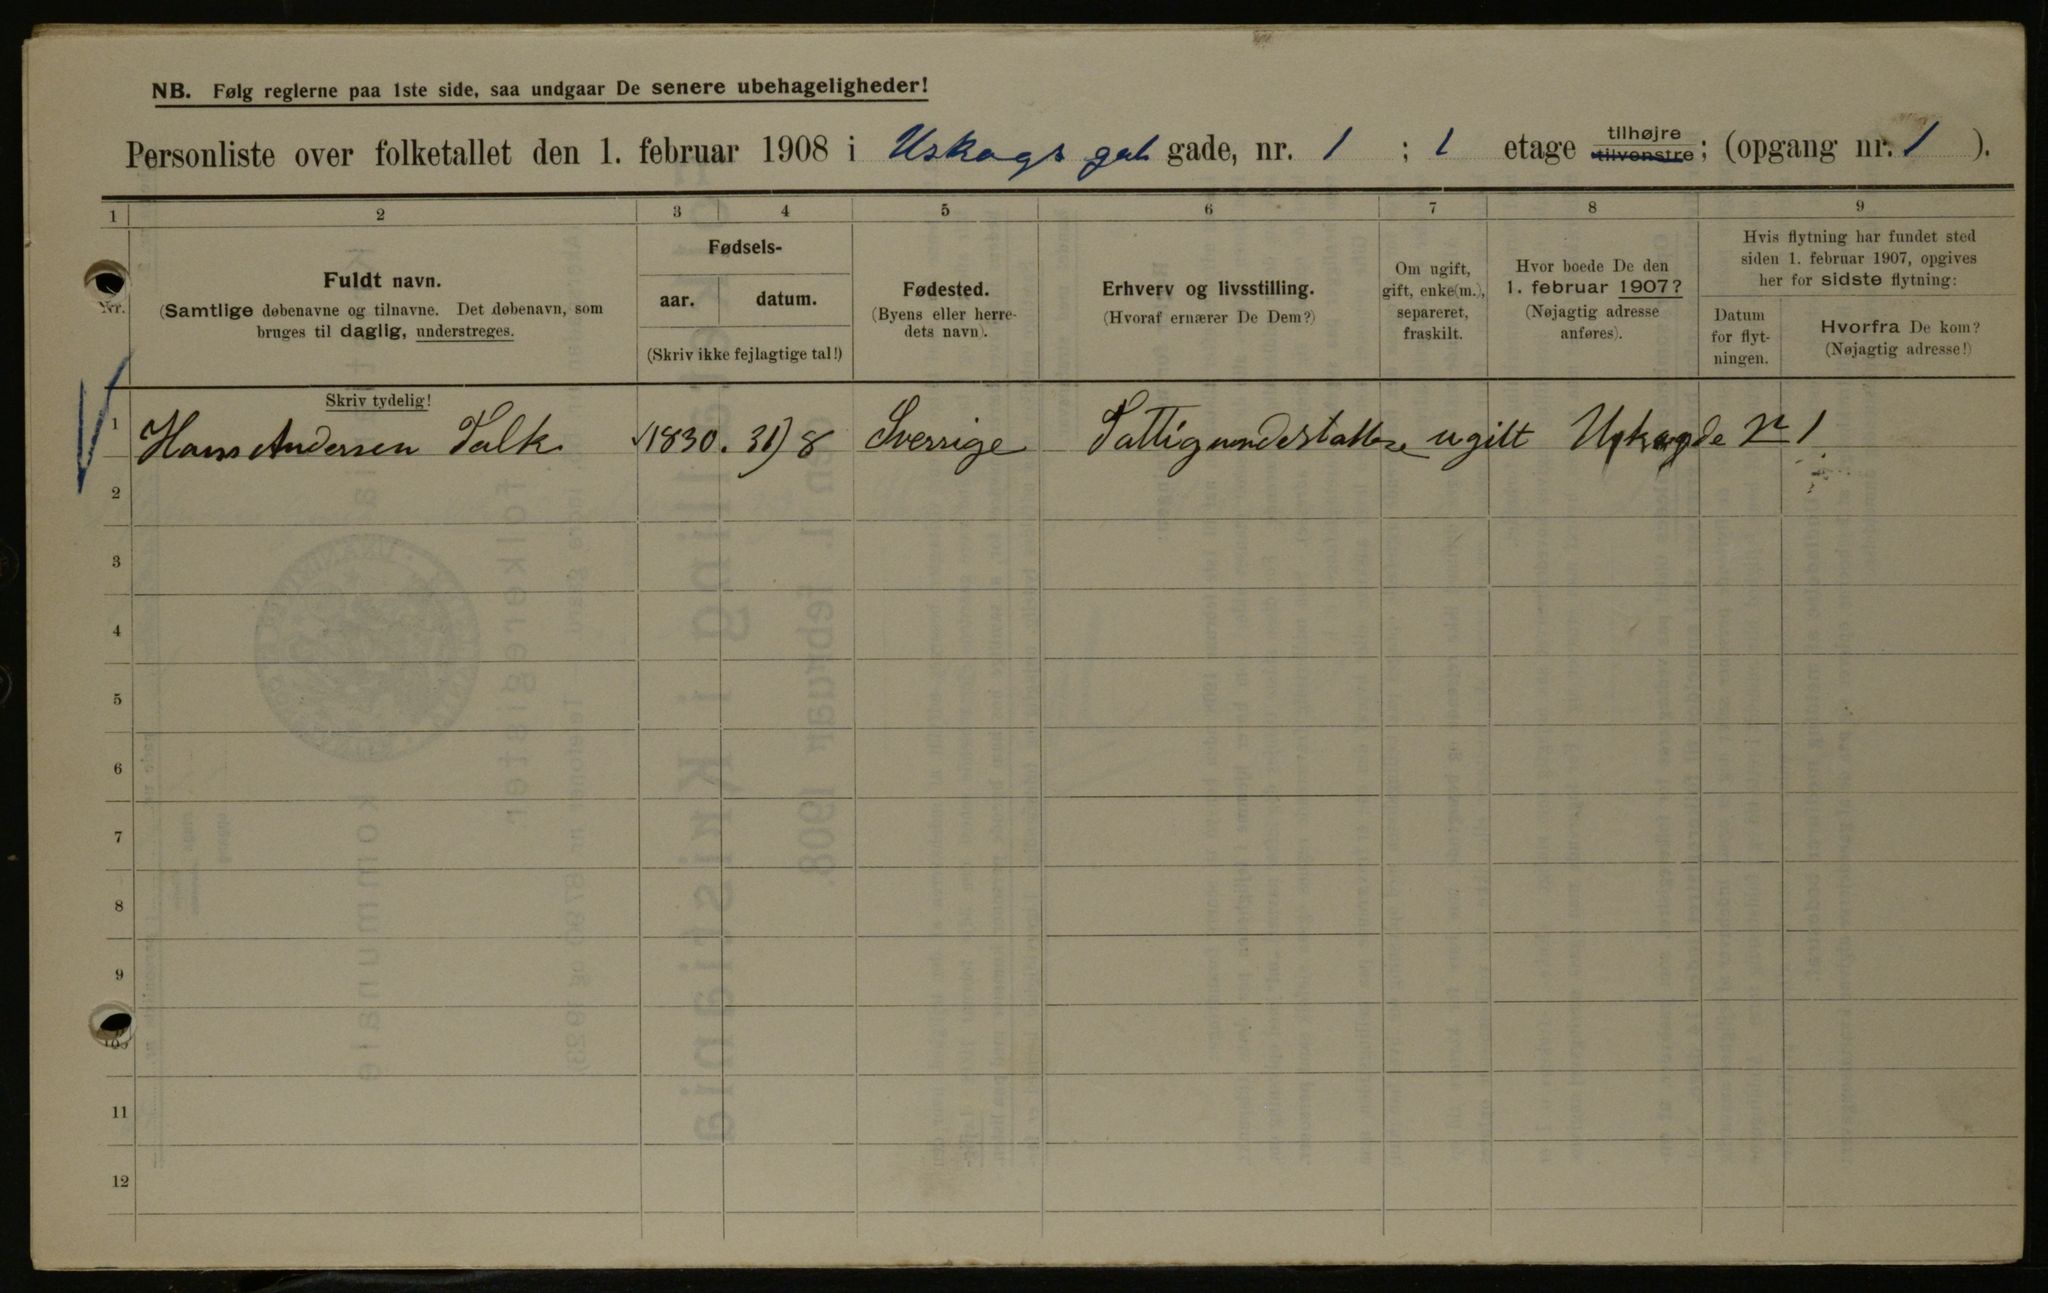 NB. Følg reglerne paa 1ste side, saa undgaar De senere ubehageligheder!
Personliste over folketallet den 1. februar 1908 i Uskogs gat gade, nr. 1 ; 1 etage tilhøjre tilvenstre; (opgang nr. 1 ).
1 2 3 4 5 6 7 8 9
Nr.
Fuldt navn.
(Samtlige døbenavne og tilnavne. Det døbenavn, som
bruges til daglig, understreges.
Fødsels-
aar. datum.
(Skriv ikke fejlagtige tal!)
Fødested.
(Byens eller herre-
dets navn).
Erhverv og livsstilling.
(Hvoraf ernærer De Dem?)
Om ugift,
gift, enke(m.),
separeret,
fraskilt.
Hvor boede De den
1. februar 1907?
(Nøjagtig adresse
anføres).
Hvis flytning har fundet sted
siden 1. februar 1907, opgives
her for sidste flytning:
Datum
for flyt-
ningen.
Hvorfra De kom?
(Nøjagtig adresse!)
Skriv tydelig!
1 Hans Andersen Falk 1830. 31/8 Sverrige ugift No 1
2
3
4
5
6
7
8
9
10
11
12